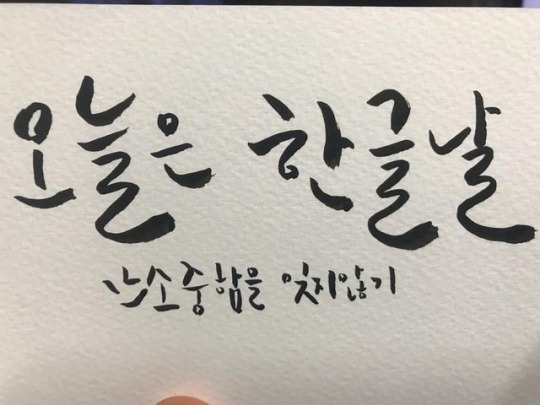 오늘은 한글날
소중함을 잊지않기